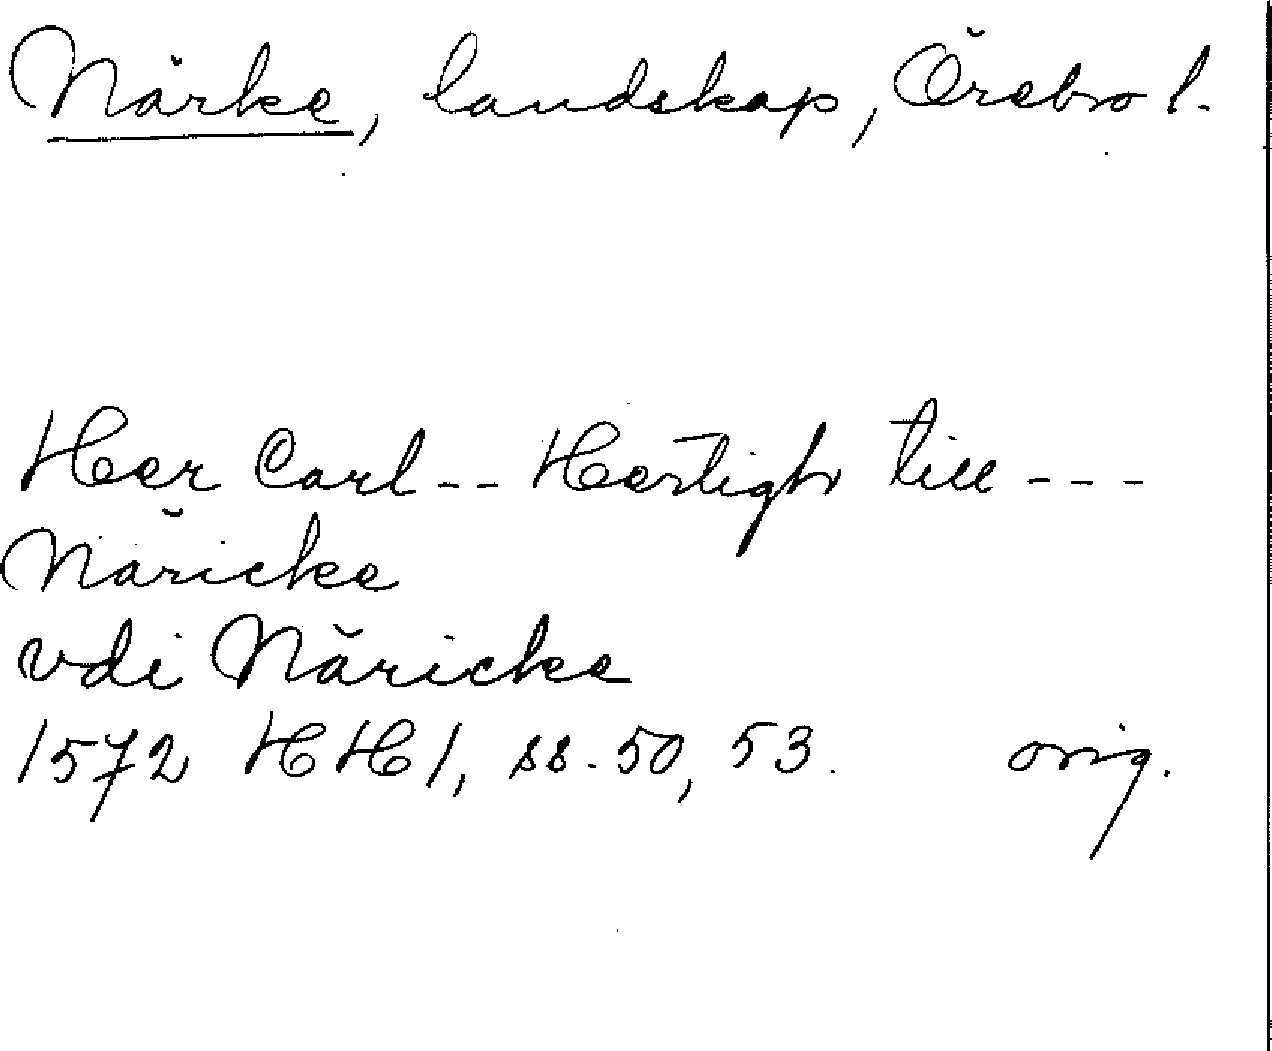 Närke, landskap, Örebro l.
Her Carl -- Hertigh till ---
Näricke
vdi Näricke
1572 HH 1, ss. 50, 53. orig.